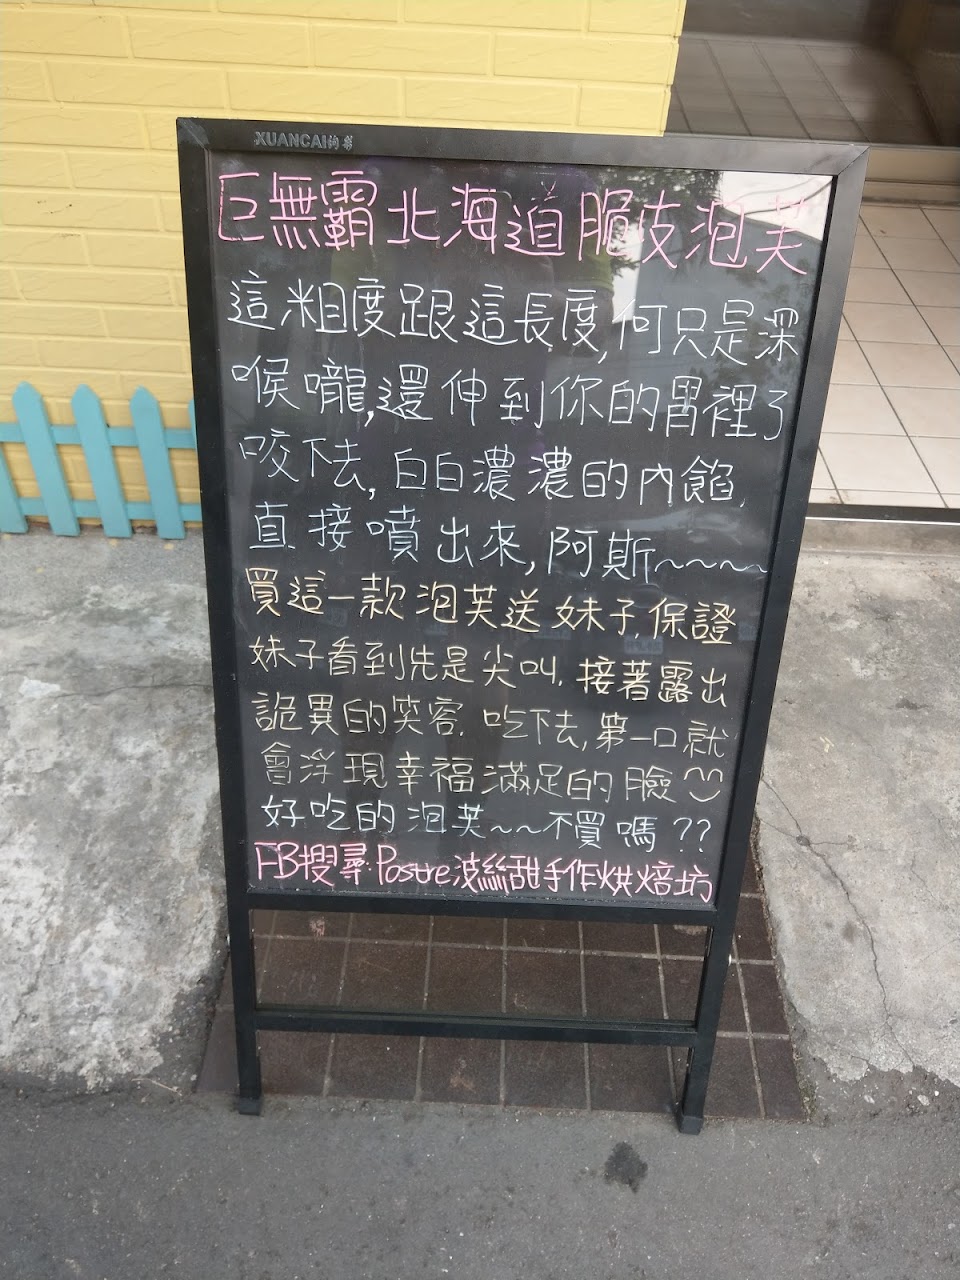 XUANCAI絢彩
巨無霸北海道脆皮泡芙
這粗度跟這長度,何只是深
喉嚨,還伸到你的胃裡了
咬下去,白白濃濃的內餡,
直接噴出來,阿斯~~~~
買這一款泡芙送妹子,保證
妹子看到先是尖叫,接著露出
詭異的笑容,吃下去,第一口就
會浮現幸福滿足的臉
好吃的泡芙~~不買嗎??
FB搜尋:Postre波絲甜手作烘焙坊